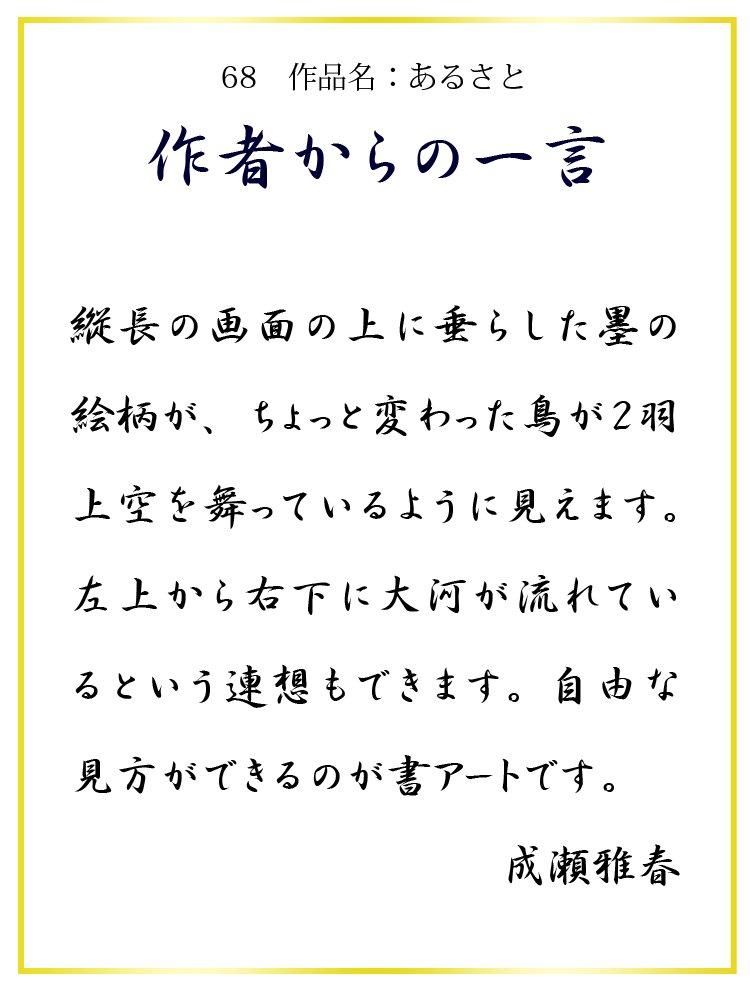 68　作品名：あるさと
作者からの一言
縦長の画面の上に垂らした墨の
絵柄が、ちょっと変わった鳥が2羽
上空を舞っているように見えます。
左上から右下に大河が流れてい
るという連想もできます。自由な
見方ができるのが書アートです。
成瀬雅春